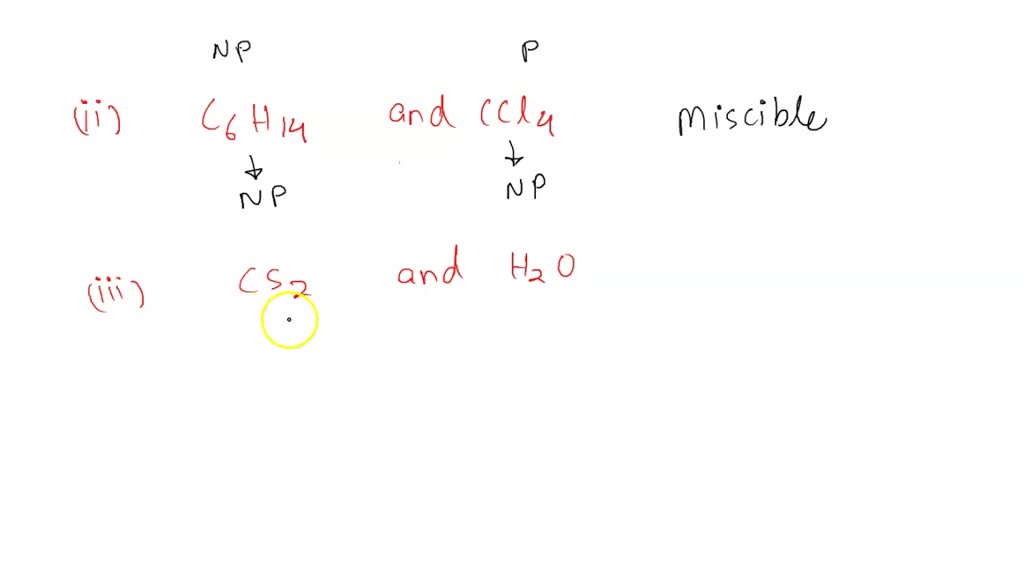 NP P
(ii) C6H14 and CCl4 Miscible
↓ ↓
NP NP
(iii) CS2 and H2O